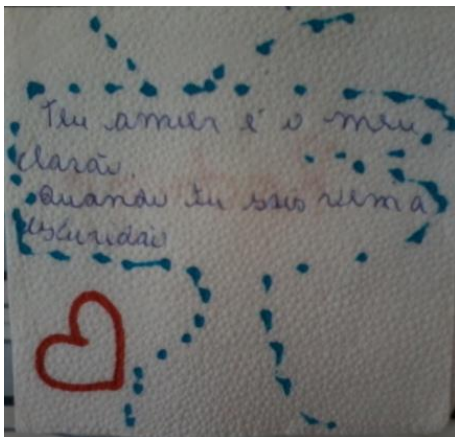 Teu amor é o meu
clarão.
Quando tu sais vem a
escuridão